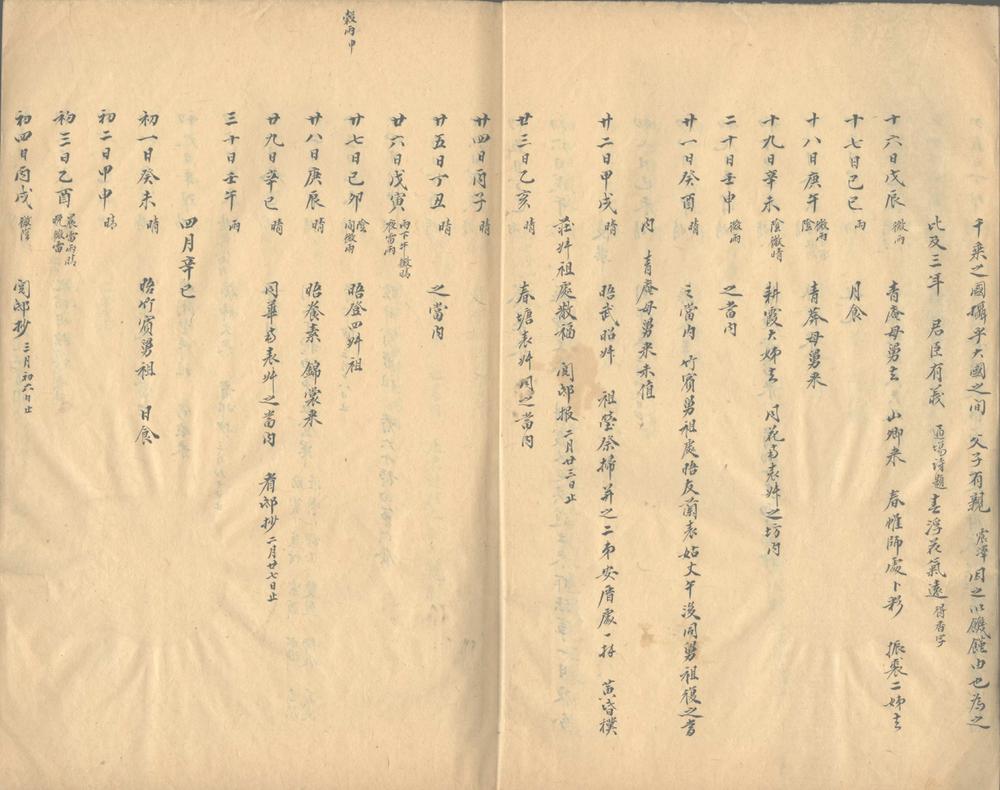 千乘之國攝乎大國之間 父子有親 震澤 因之以饑饉由也為之
比及三年 君臣有義 通場詩題 春浮花氣遠 得香字
十六日戊辰 微雨 青庵母舅去 山卿來 春帷師處卜彩 振裘二姊去
十七日己巳 雨 月食
十八日庚午 微雨陰 青莽母舅來
十九日辛未 晴陰微 耕霞大姊去 同花南表姊之坊内
二十日壬申 微雨 之當内
廿一日癸酉 晴 之當内 竹賓舅祖處晤友蘭表姑丈午後同舅祖復之當
内 青庵母舅來未值
廿二日甲戌 晴 晤武昭姊 祖塋祭掃并之二弟安厝處一拜 黃昏樸
莊姊祖處散福 閱邸報 二月廿三日止
廿三日乙亥 晴 春塘表姊同之當内
廿四日丙子 晴
廿五日丁丑 晴 之當内
廿六日戊寅 雨下午微晴夜雷雨
穀雨申
廿七日己卯 陰間微雨 晤登四姊祖
廿八日庚辰 晴 晤養素 錦裳來
廿九日辛巳 晴 同華南表姊之當内 看邸抄 二月廿七日止
三十日壬午 雨
四月辛巳
初一日癸未 晴 晤竹賓舅祖 日食
初二日甲申 晴
初三日乙酉 晨雷雨晴晚微雷
初四日丙戌 微陰 閱邸抄 三月初六日止